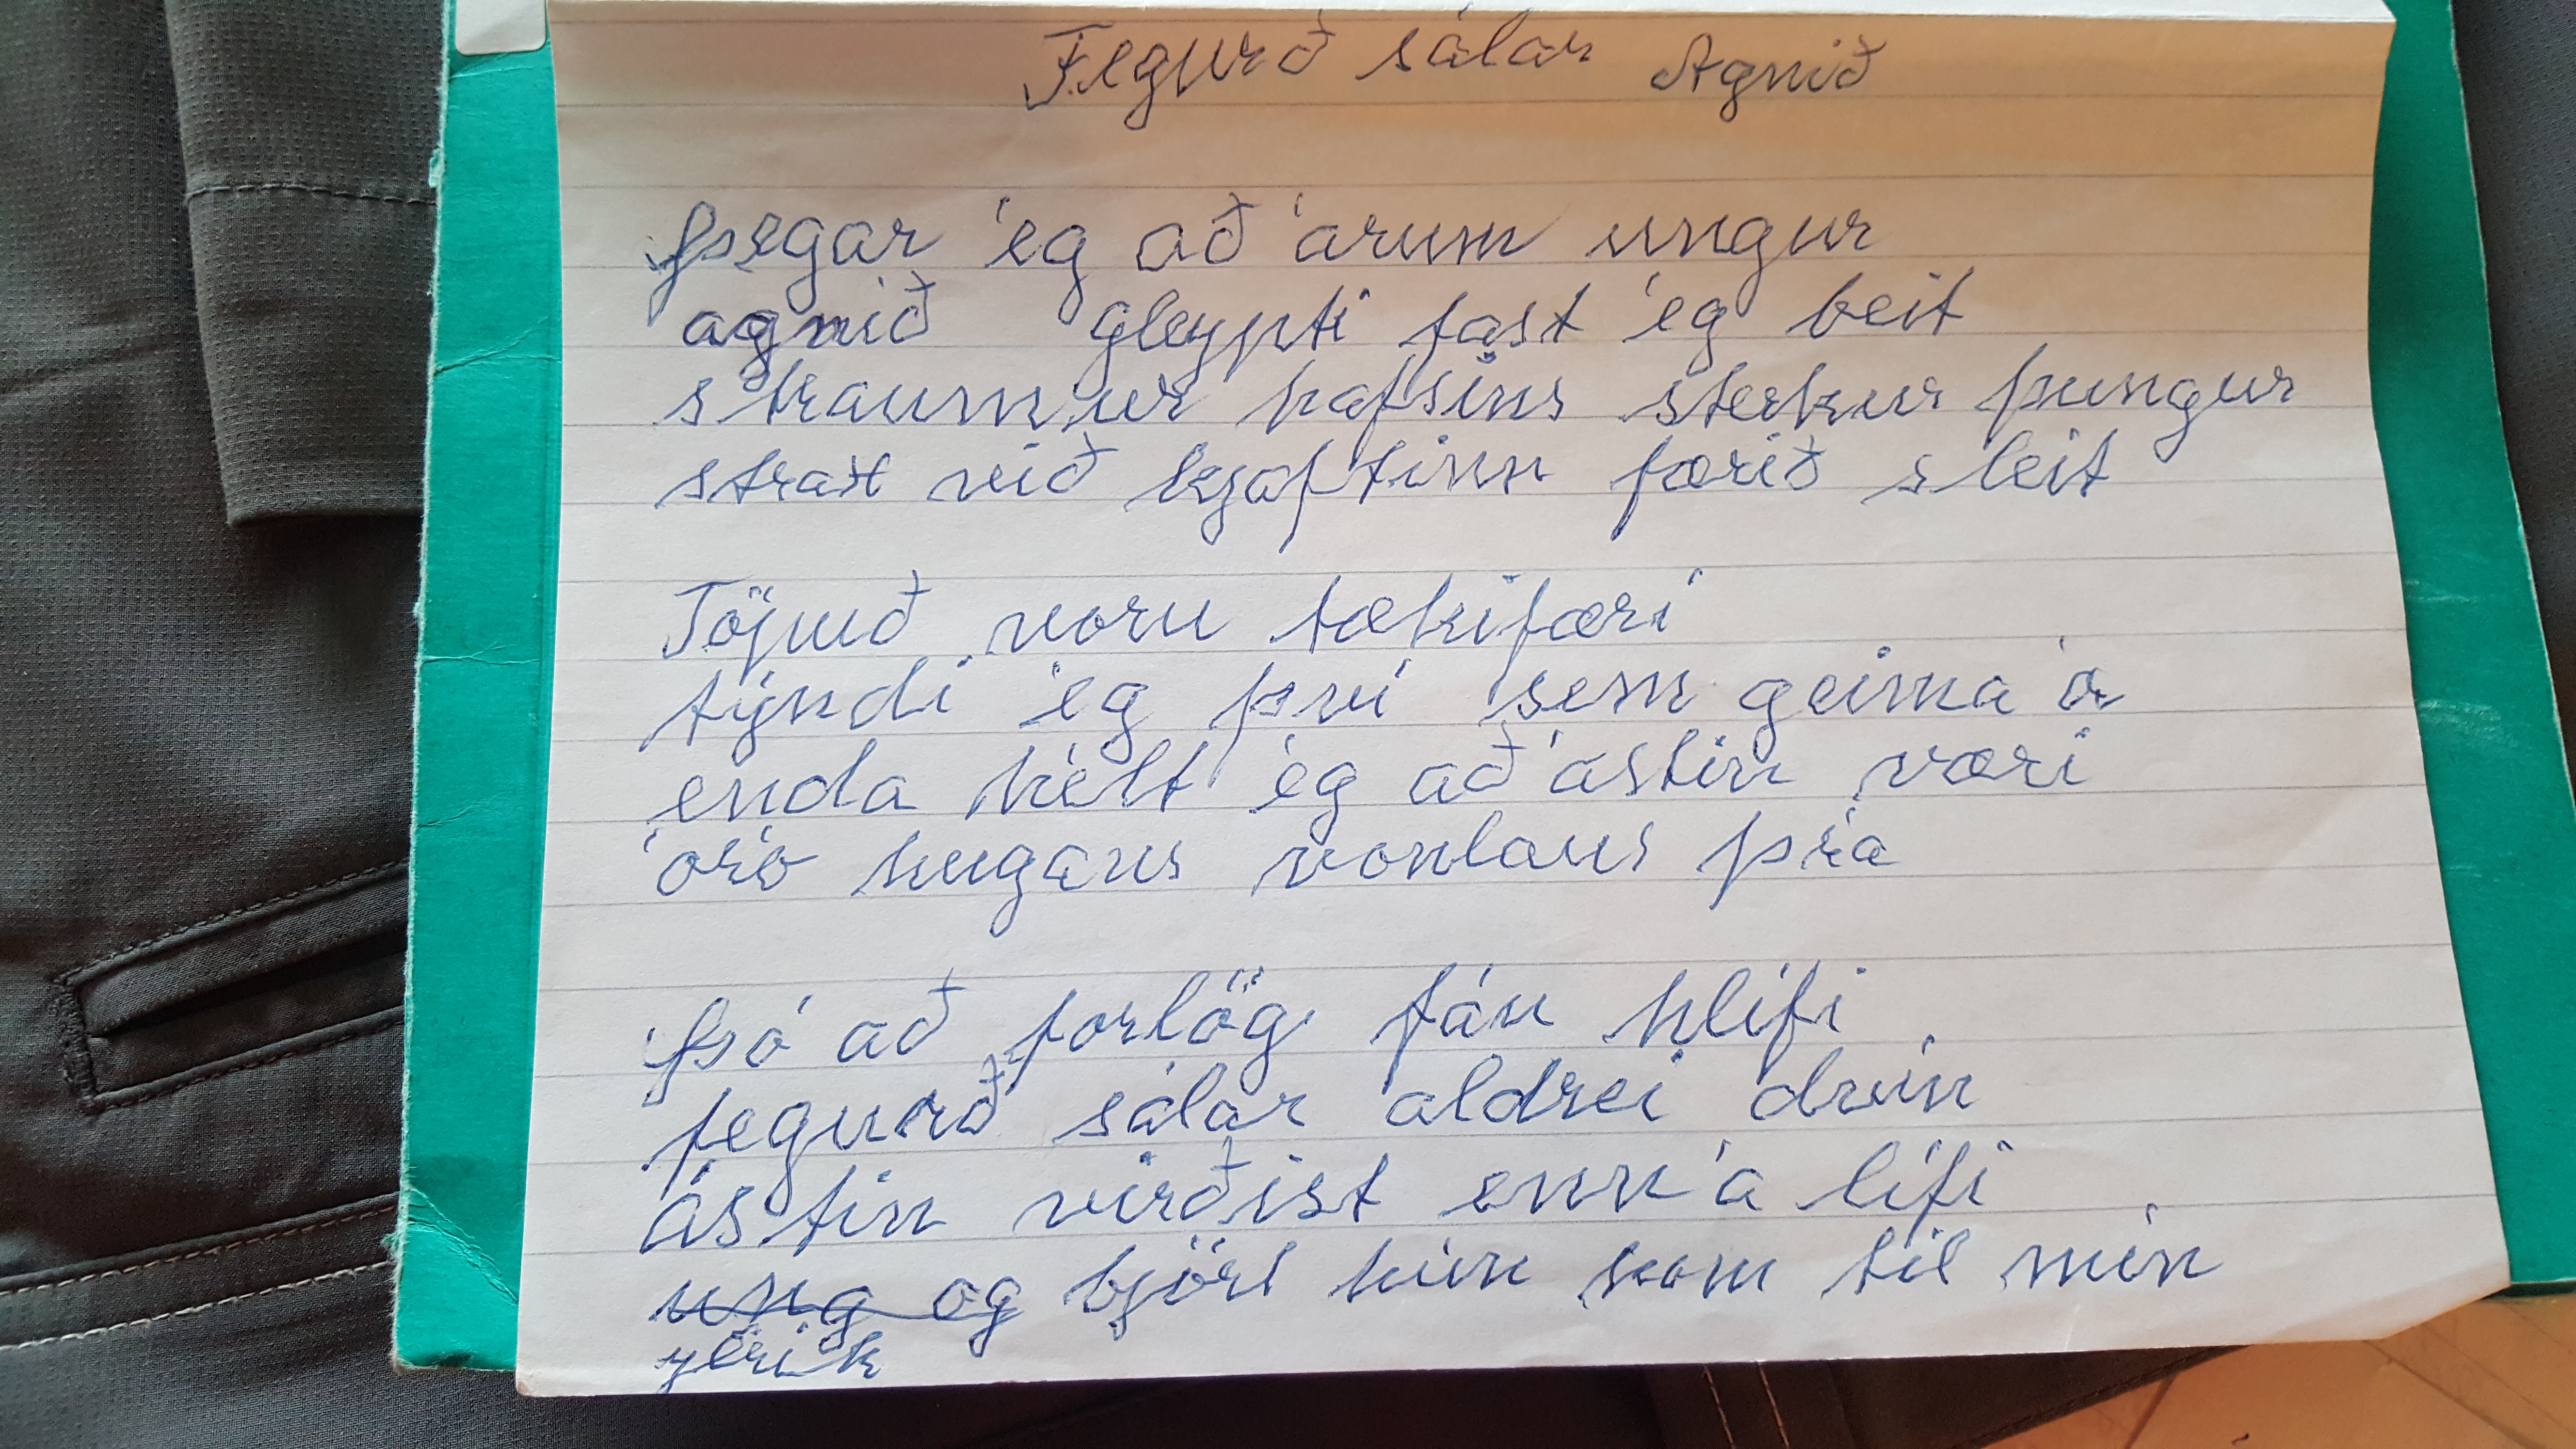 Fegurð sálar Agnið
Þegar ég að árum ungur
agnið gleypti fast ég beit
straumur hafsins sterkur þungur
strax við kjaftinn færið sleit
Töpuð voru tækifæri
týndi ég því sem geima á
enda hélt ég að ástin væri
óró hugans vonlaus þrá
Þó að forlög fáu hlífi
fegurð sálar aldrei dvín
ástin virðist enn á lífi
ung og björt hún kom til mín